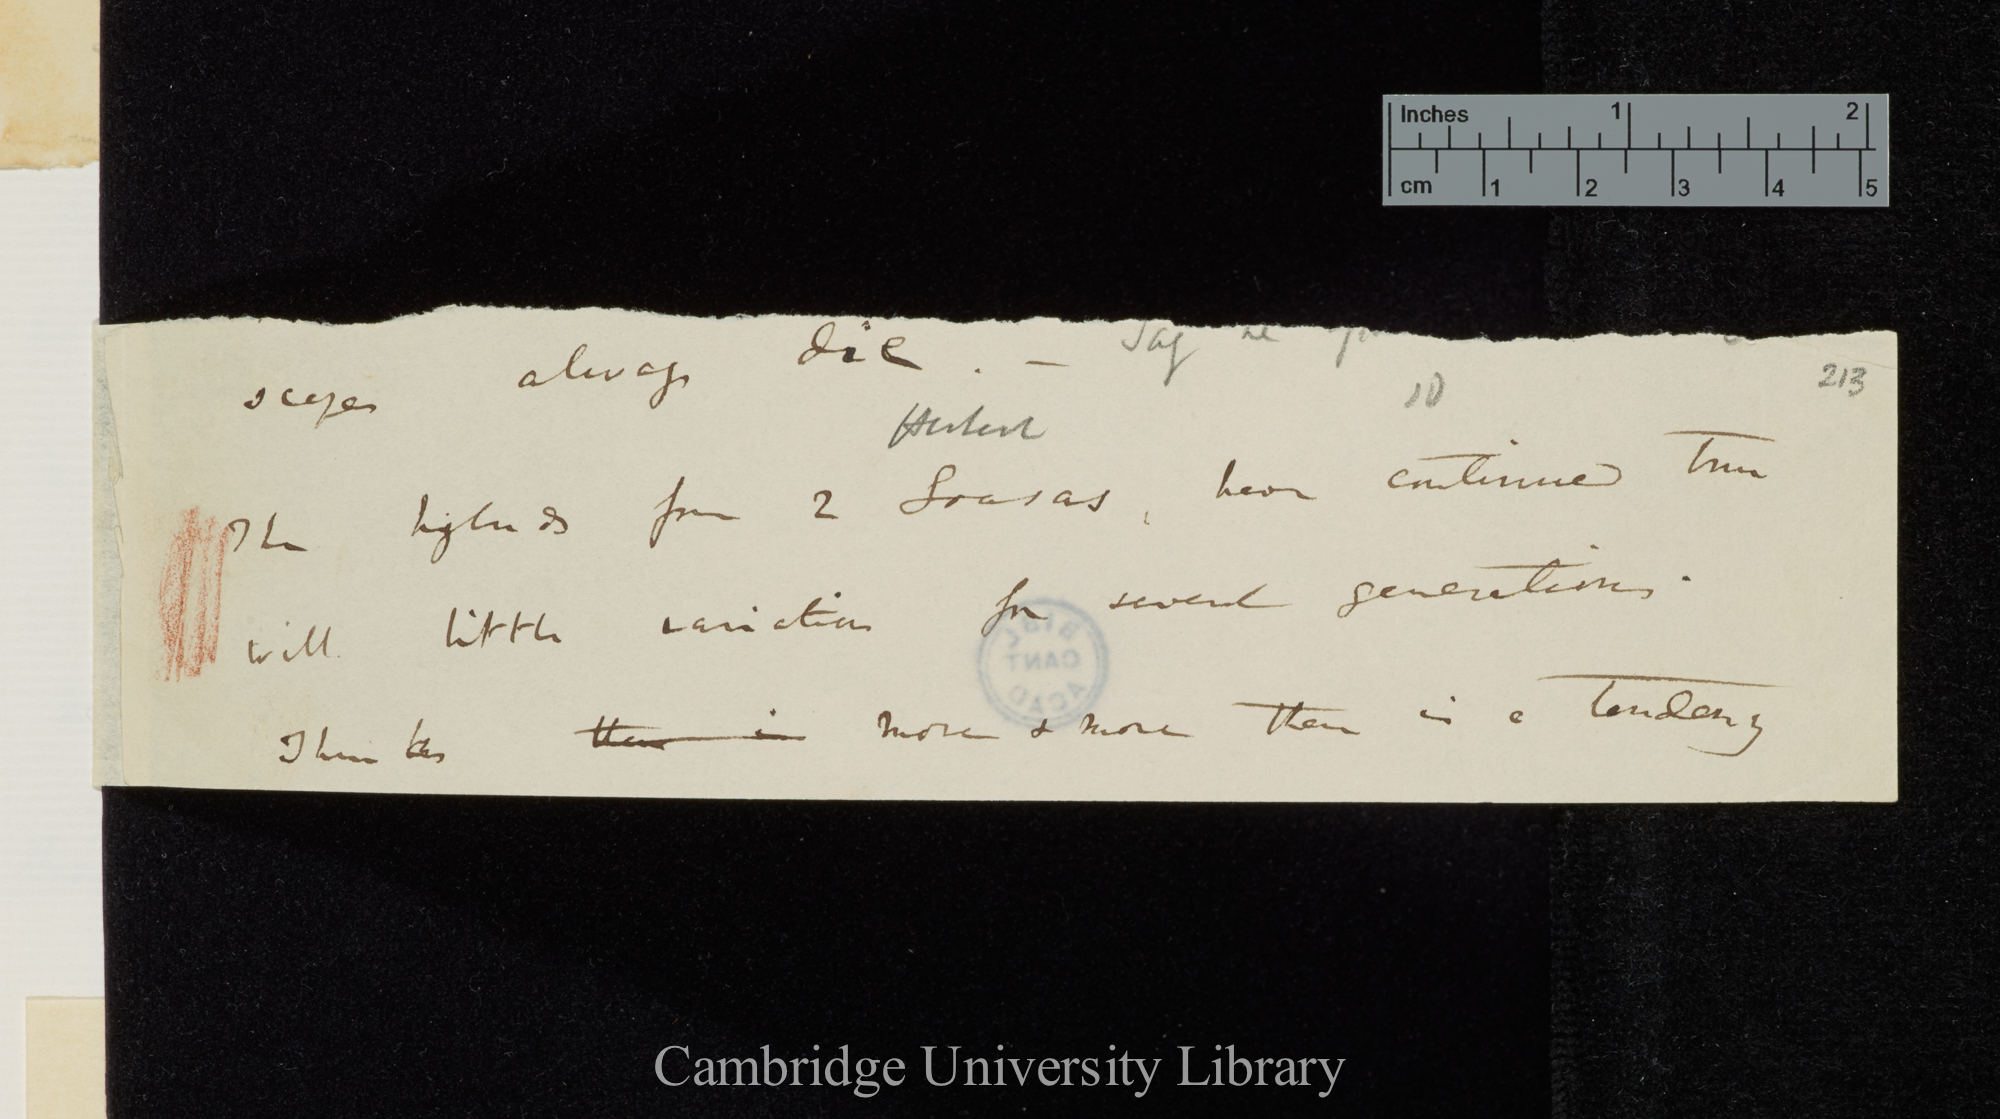 Inches 1 2
cm 1 2 3 4 5
scapes always die . — Say he
10
213
Herbert
The hybrids from 2 Loasas, have continued true
with little variation for several generations.
Thinks there is more & more there is a tendency
BIBL
CANT
ACAD
Cambridge University Library